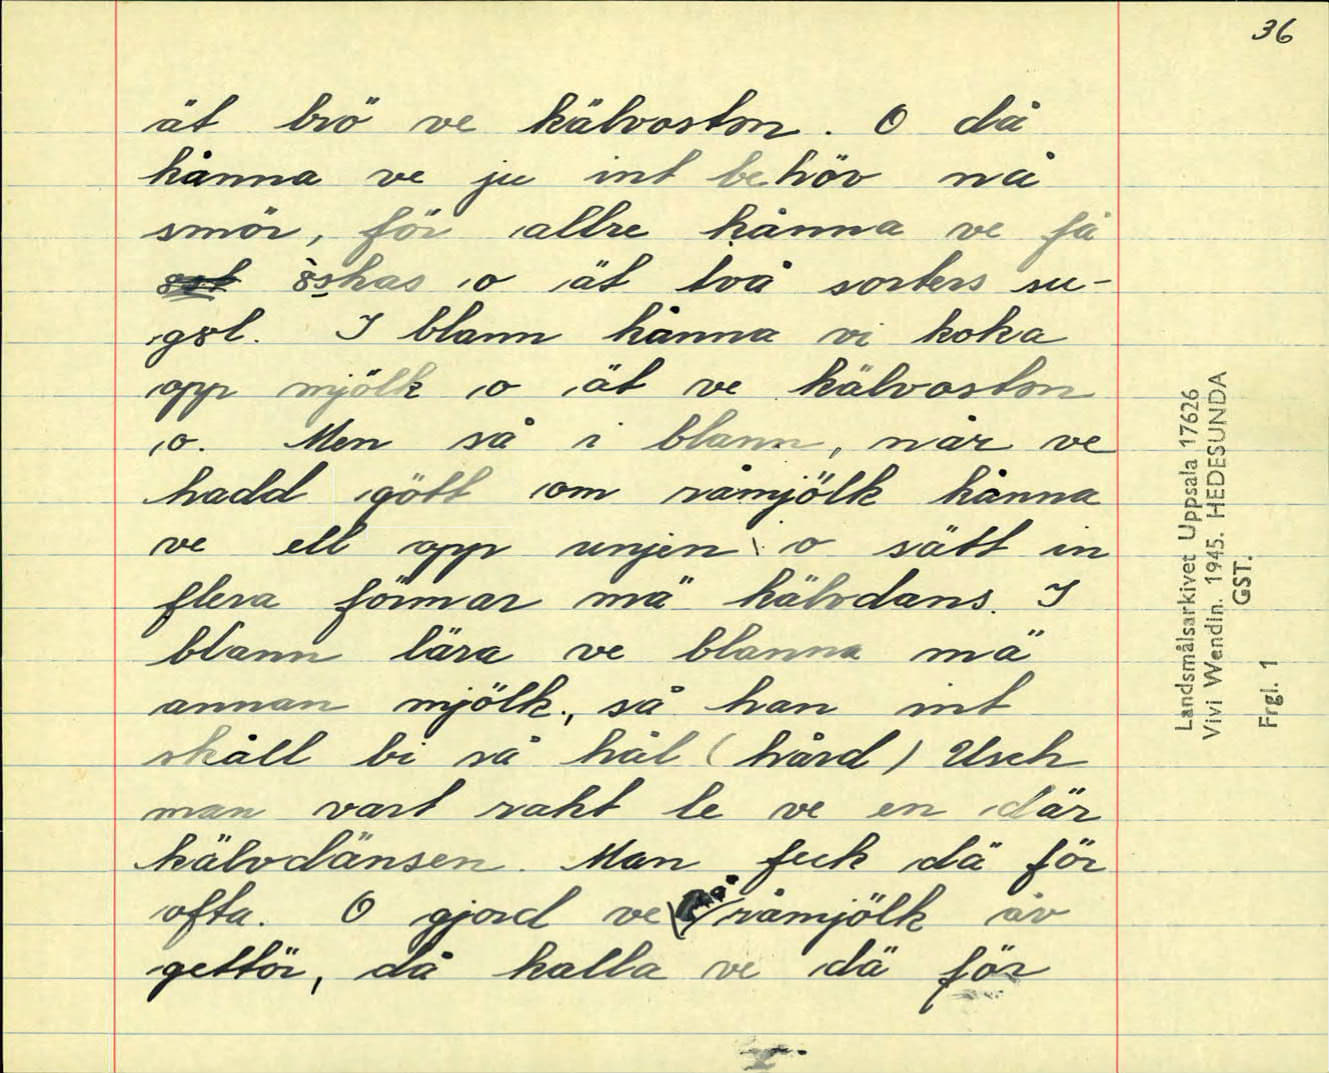 36
ät brö ve kälvostn. O då
kånna ve ju int behöv nå
smör, för allre kånna ve få
öskas o ät två sorters su-
gəl. I blann kånna vi koka
opp mjölk o ät ve kälvostn
o. Men så i blann, når ve
hadd gött om råmjölk kånna
ve ell opp unjen o sätt in
flera formar mä kälvdans. I
blann lära ve blanna mä
annan mjölk, så han int
skåll bi så hål (hård) Usch
man vart rakt le ve en där
kälvdänsen. Man feck dä för
ofta. O gjord ve råmjölk åv
gettör, då kalla ve dä för
Landsmålsarkivet Uppsala 17626
Vivi Wendin. 1945. HEDESUNDA
GST.
Frgl. 1